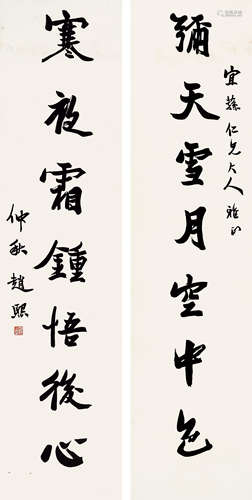 宜蘇仁兄大人雅正
彌天雪月空中色
寒夜霜鍾悟後心
仲秋趙熙